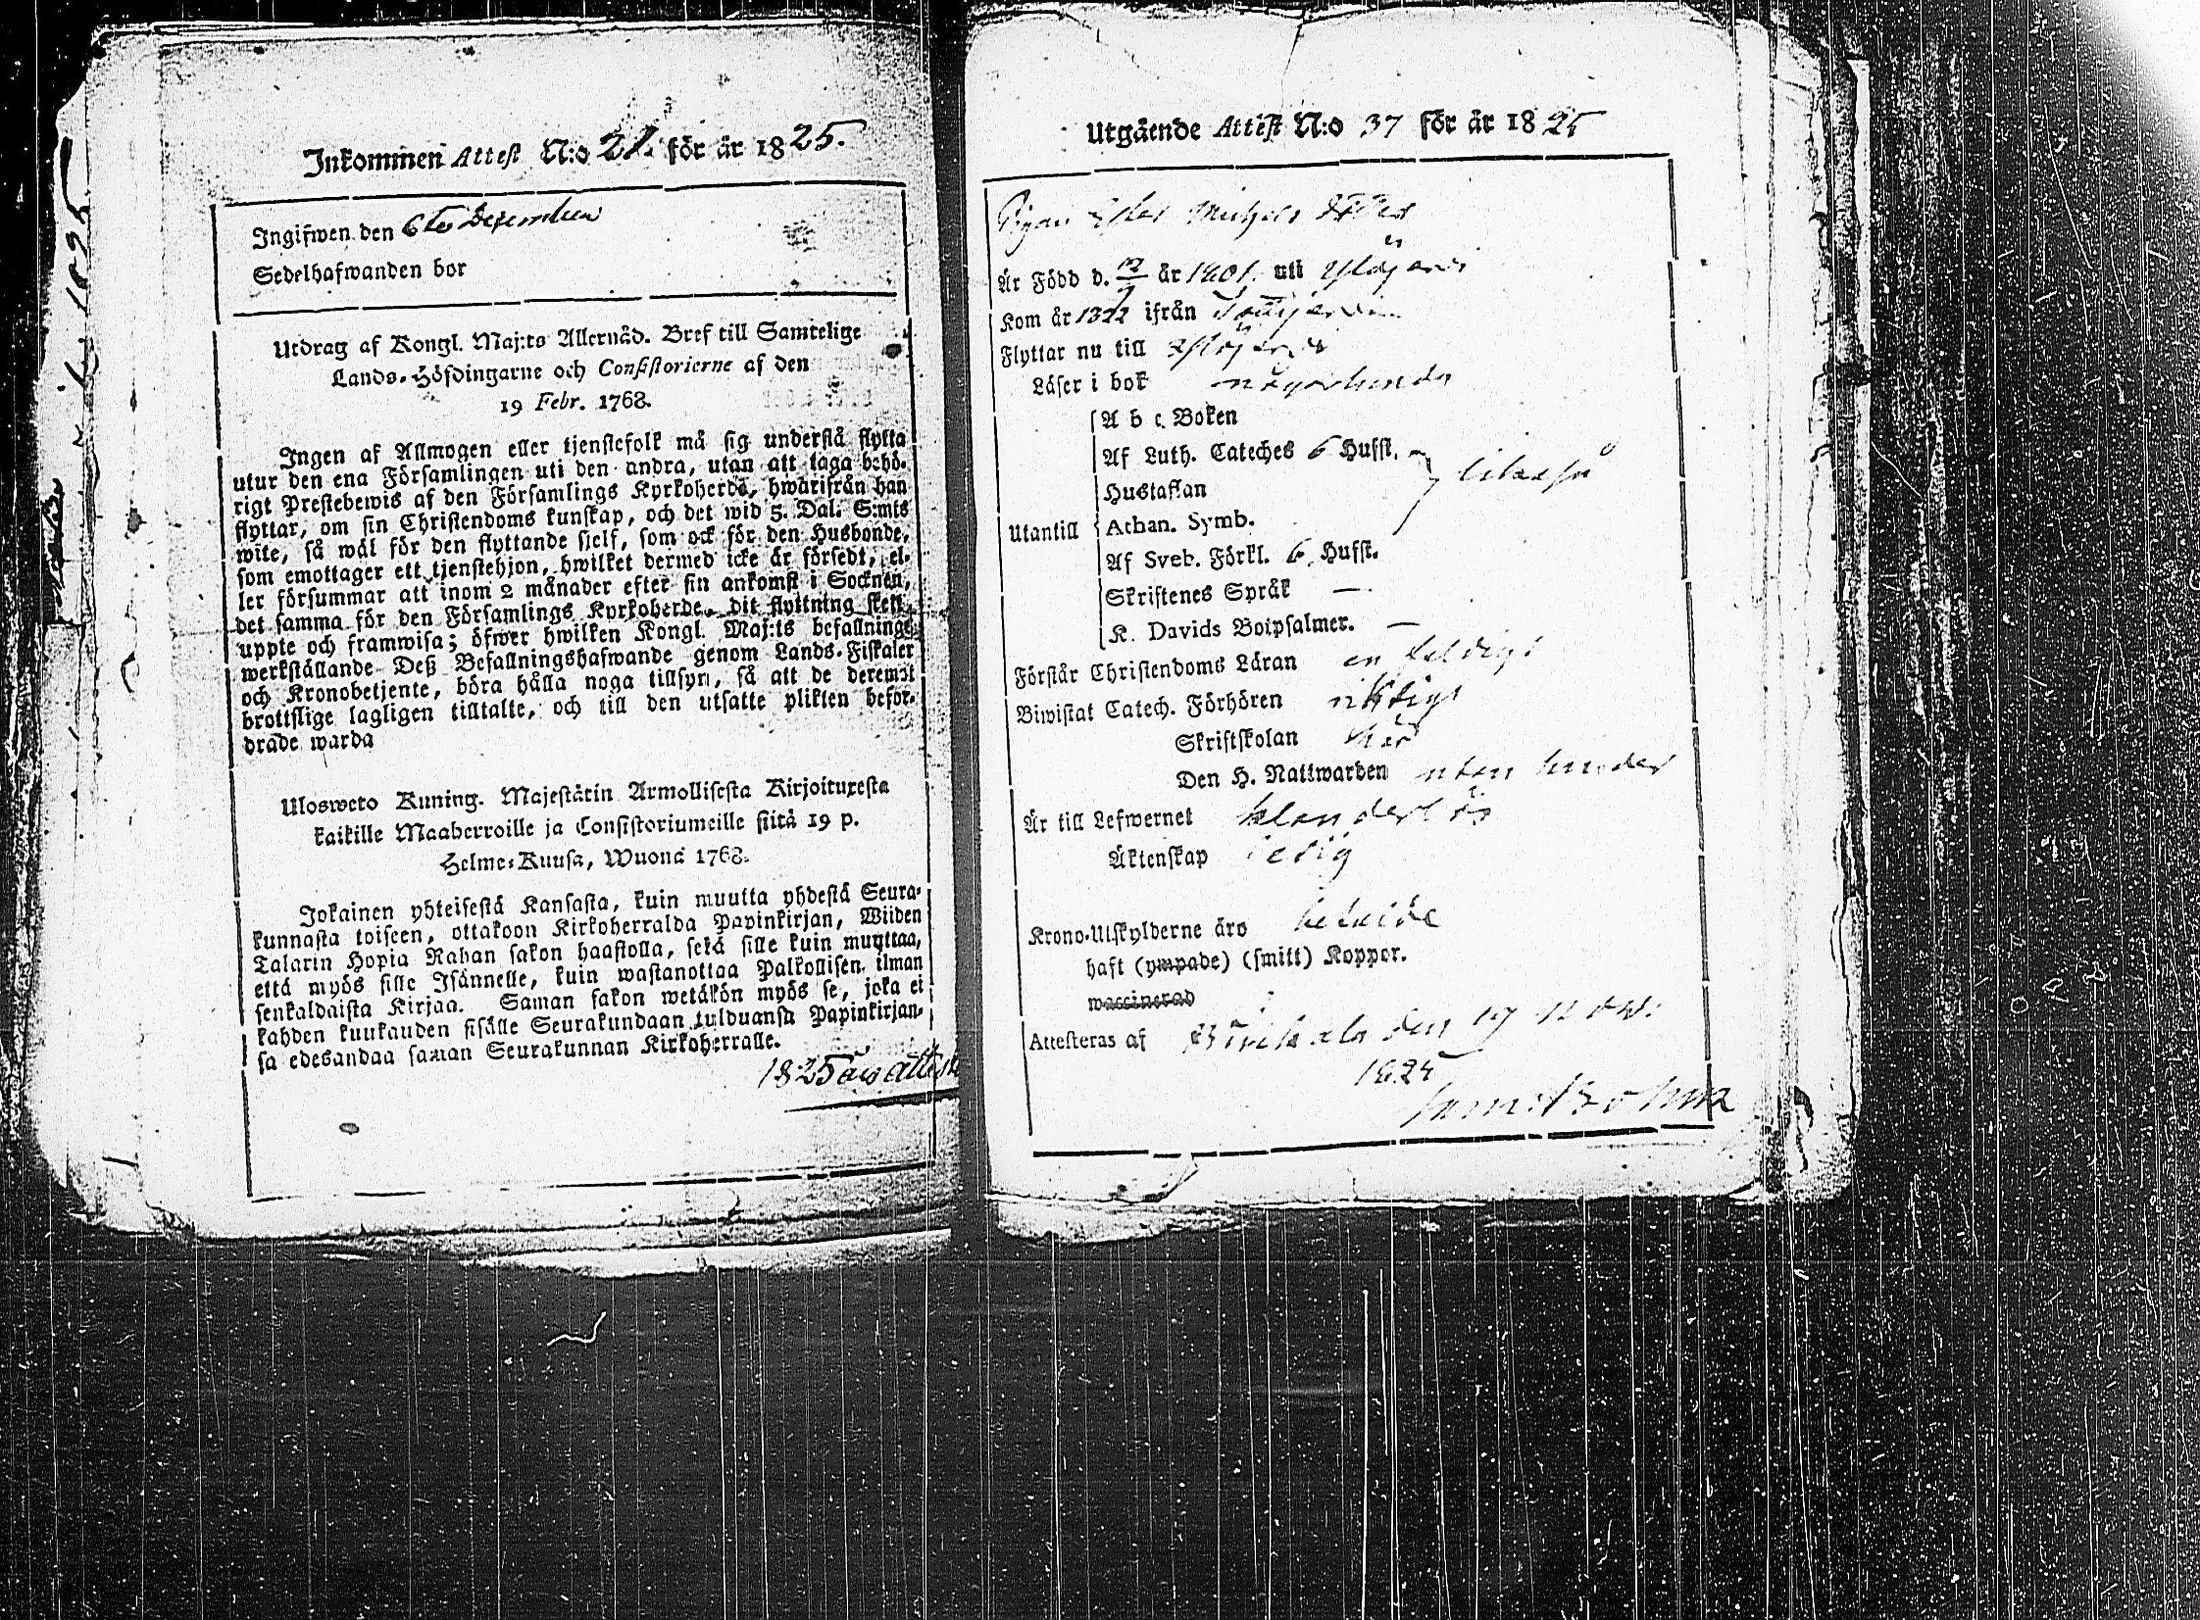 Inkommen Attest N:o 21. för år 1825.
Ingifwen den 6te Dezember
Sedelhafwanden bor
Utdrag af Kongl. Maj:ts Allernåd. Bref till Samtelige
Lands-Höfdingarne och Consistorierne af den
19 Febr. 1768.
Ingen af Allmogen eller tjenstefolk må sig understå flytta
utur den ena Församlingen uti den andra, utan att taga behö-
rigt Prestebewis af den Församlings Kyrkoherde, hwarifrån han
flyttar, om sin Christendoms kunskap, och det wid 5. Dal. S:mts
wite, så wäl för den flyttande sielf, som ock för den Husbonde,
som emottager ett tjenstehjon, hwilket dermed icke är försedt, el-
ler försummar att inom 2 månader efter sin ankomst i Socknen,
det samma för den Församlings Kyrkoherde, dit flyttning skett,
uppte och framwisa; öfwer hwilken Kongl. Maj:ts befallnings
werkställande Deß Befallningshafwande genom Lands-Fiskaler
och Kronobetjente, böra hålla noga tillsyn, så att de deremot
brottslige lagligen tilltalte, och till den utsatte plikten befor-
drade warda
Ulosweto Kuning. Majestätin Armollisesta Kirjoituxesta
kaikille Maaherroille ja Consistoriumeille siitä 19 p.
Helme-Kuusa, Wuona 1768.
Jokainen yhteisestä Kansasta, kuin muutta yhdestä Seura-
kunnasta toiseen, ottakoon Kirkoherralda Papinkirjan, Wiiden
Talarin Hopia Rahan sakon haastolla, sekä sille kuin muuttaa,
että myös sille Isännelle, kuin wastanottaa Palkollisen ilman
senkaldaista Kirjaa. Saman sakon wetäkön myös se, joka ei
kahden kuukauden sisälle Seurakundaan tulduansa Papinkirjan-
sa edesandaa saman Seurakunnan Kirkoherralle.
1825 års attest
Utgående Attest N:o 37 för år 1825
Pigan Michels
Är Född d. 12 år 1801 uti Ylöjervi
Kom år 1822 ifrån
Flyttar nu till Ylöjervi
Läser i bok någorlunda
A b c Boken
Af Luth. Cateches 6 Hufst.
Hustaflan
likaså
Utantill Athan. Symb.
Af Sveb. Förkl. 6. Hufst.
Skriftenes Språk —
K. Davids Botpsalmer. —
Förstår Christendoms Läran enfeldigt
Biwistat Catech. Förhören riktigt
Skriftskolan här
Den H. Nattwarden utan hinder
Är till Lefwernet klanderlös
Äktenskap ledig
Krono-Utskylderne äro betalde
haft (ympade) (smitt) Koppor.
waccinerad
Attesteras af Birkala den 19 Now.
1825